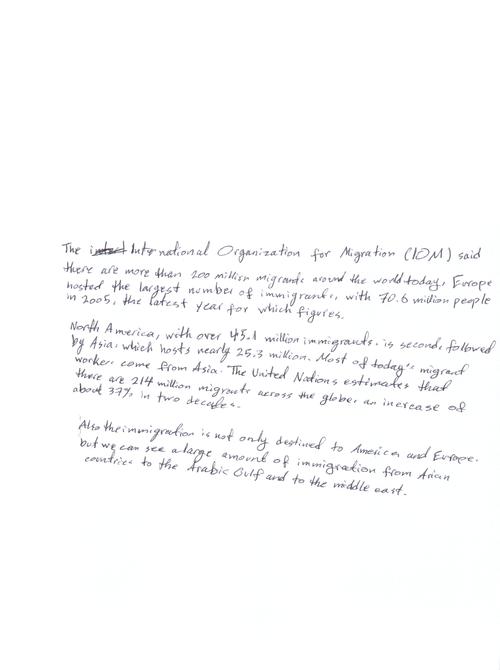 The International Organization for Migration (IOM) said
there are more than 200 million migrants around the world today, Europe
hosted the largest number of immigrants, with 70.6 million people
in 2005, the latest year for which figures.
North America, with over 45.1 million immigrants, is second, followed
by Asia, which hosts nearly 25.3 million. Most of today's migrant
workers come from Asia. The United Nations estimates that
there are 214 million migrants across the globe, an increase of
about 37% in two decades.
Also the immigration is not only destined to America and Europe.
but we can see a large amount of immigration from Asian
countries to the Arabic Gulf and to the middle east.